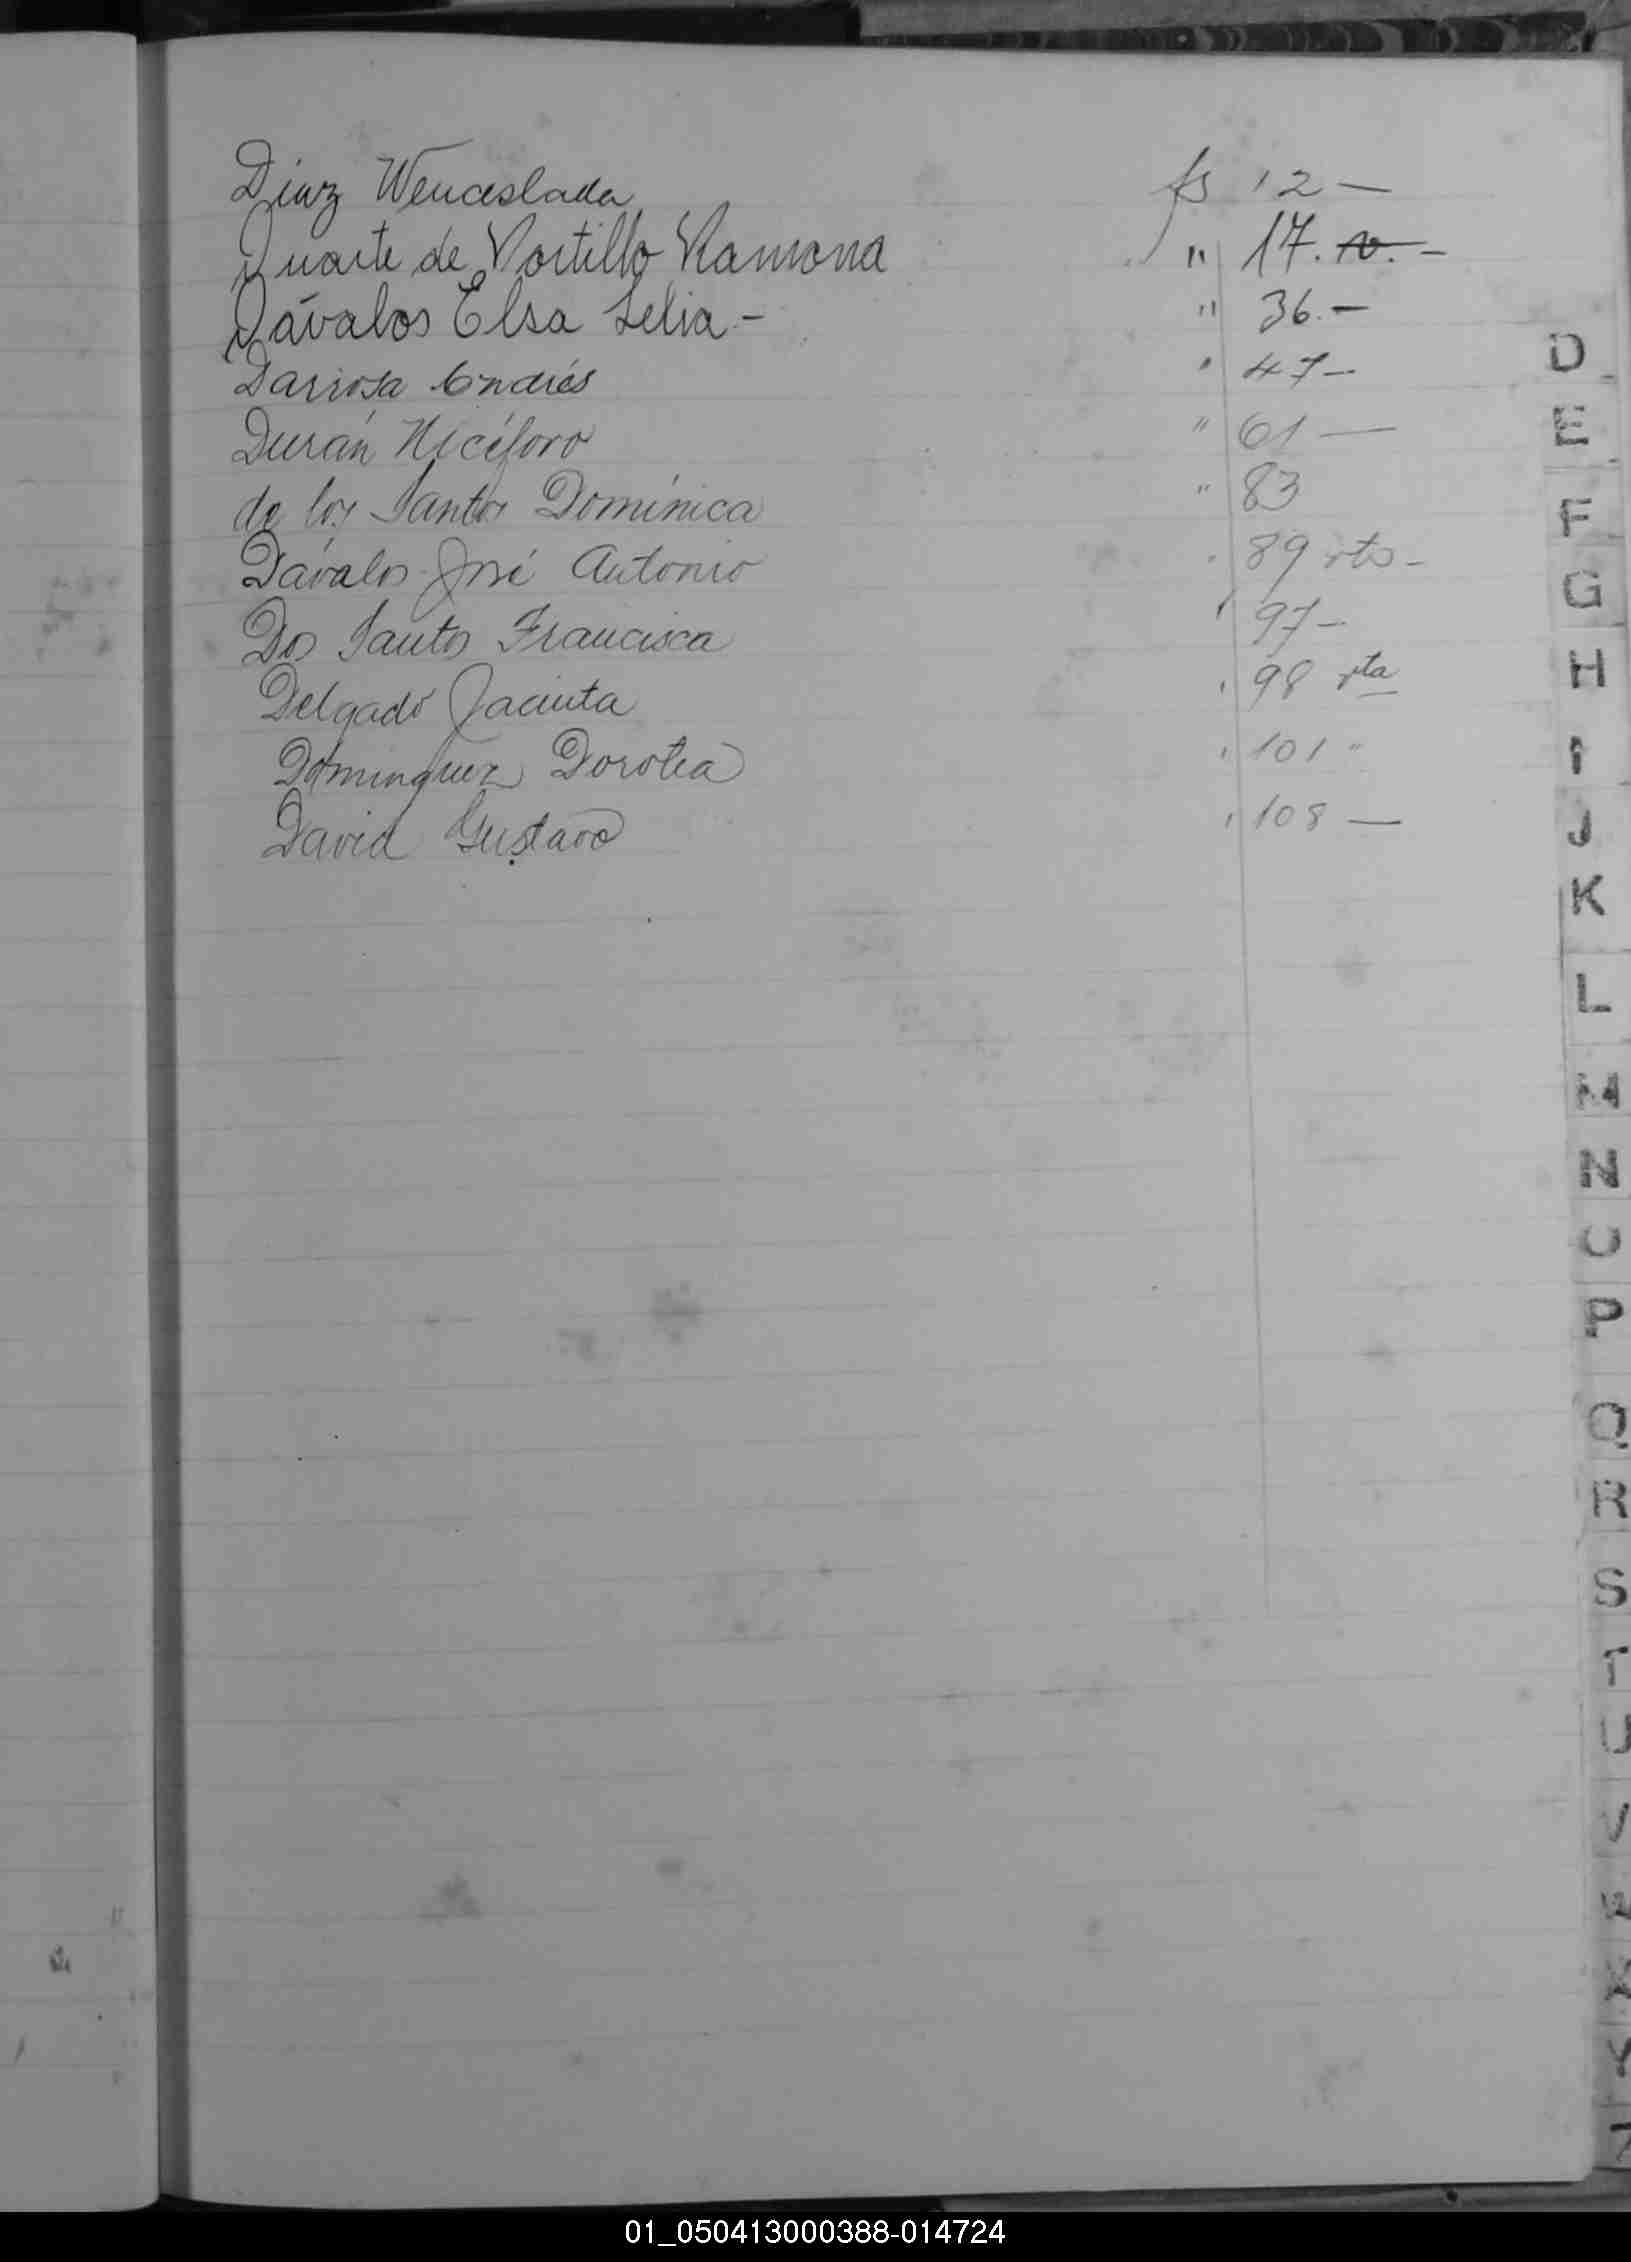 Diaz Wenceslada fs 12 —
Duarte de Portillo Ramona " 17. v. -
Dávalos Elsa Lelia - " 36.-
Darrosa Andrés " 47 -
Durán Nicéforo " 61 —
de los Santos Dominica " 83
Dávalos José Antonio " 89 vto -
Dos Santos Francisca " 97 -
Delgado Jacinta " 98 vta
Dominguez Dorotea " 101 "
David Gustavo " 108 —
D
E
F
G
H
I
J
K
L
M
N
O
P
Q
R
S
T
U
V
Z
01_050413000388-014724